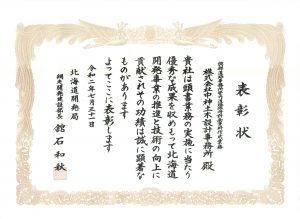 表彰状
株式会社中神土木設計事務所 殿
貴社は頭書業務の実施に当たり
優秀な成果を収めもって北海道
開発事業の推進と技術の向上に
貢献されその功績は誠に顕著な
ものがあります
よってここに表彰します
令和二年七月三十一日
北海道開発局
網走開発建設部長 舘石和秋